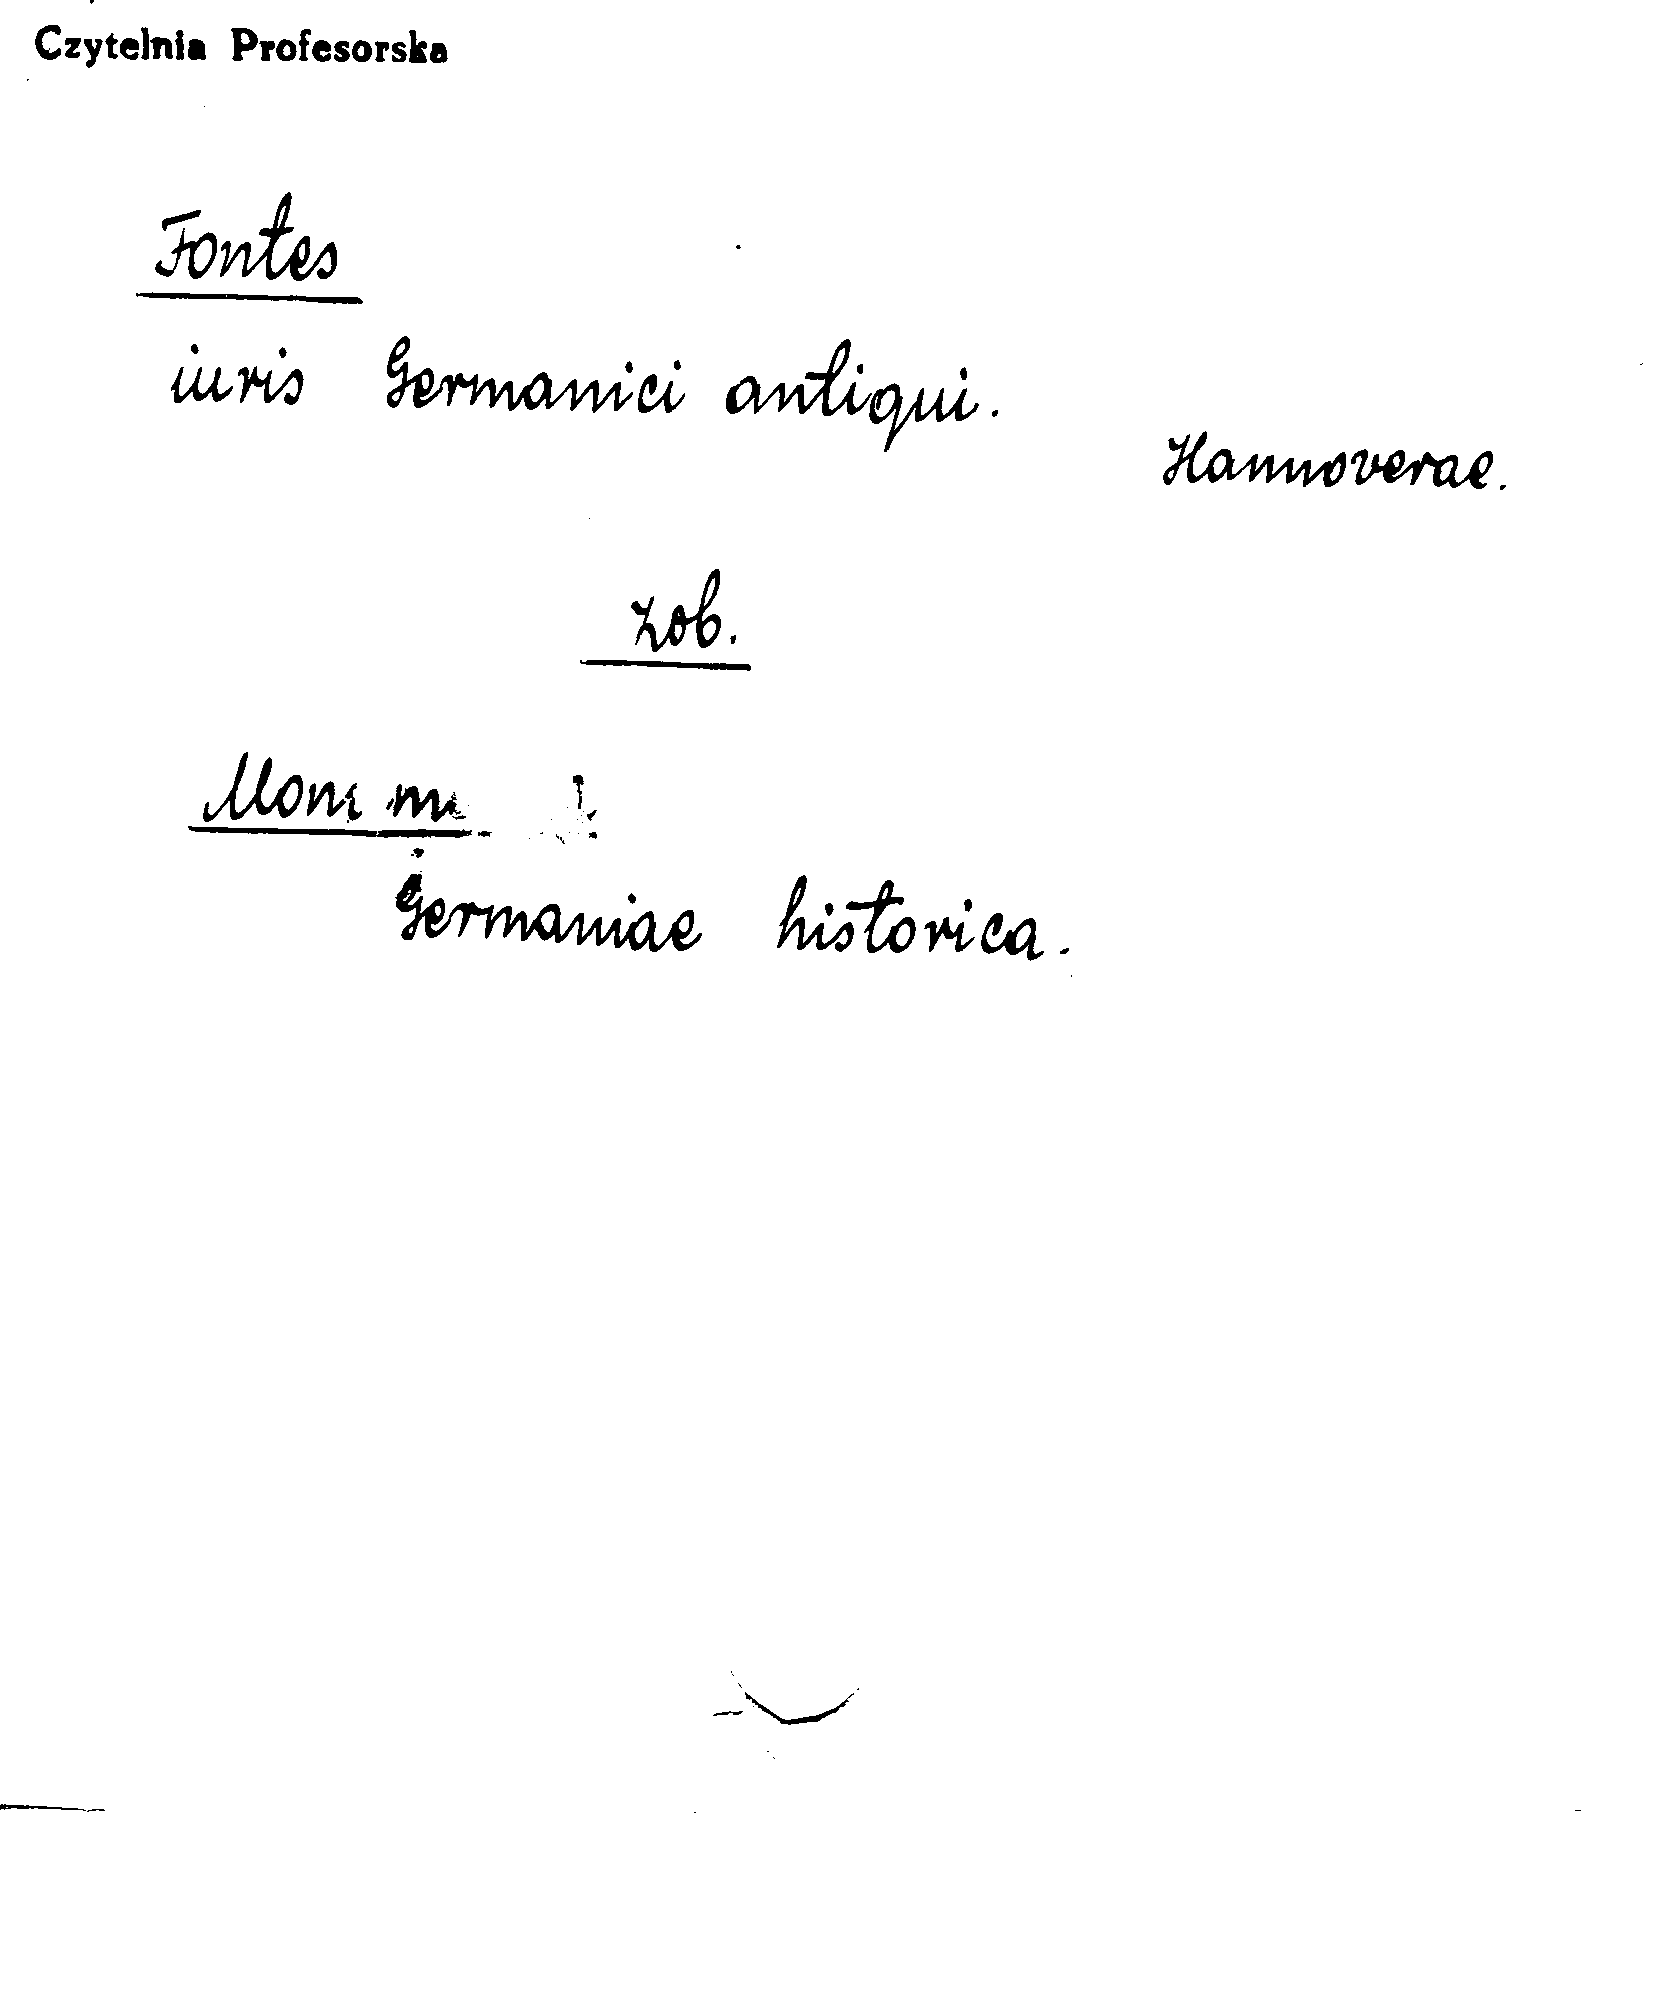 Czytelnia Profesorska
Fontes
iuris Germanici antiqui.
Hannoverae.
zob.
Germaniae historica.